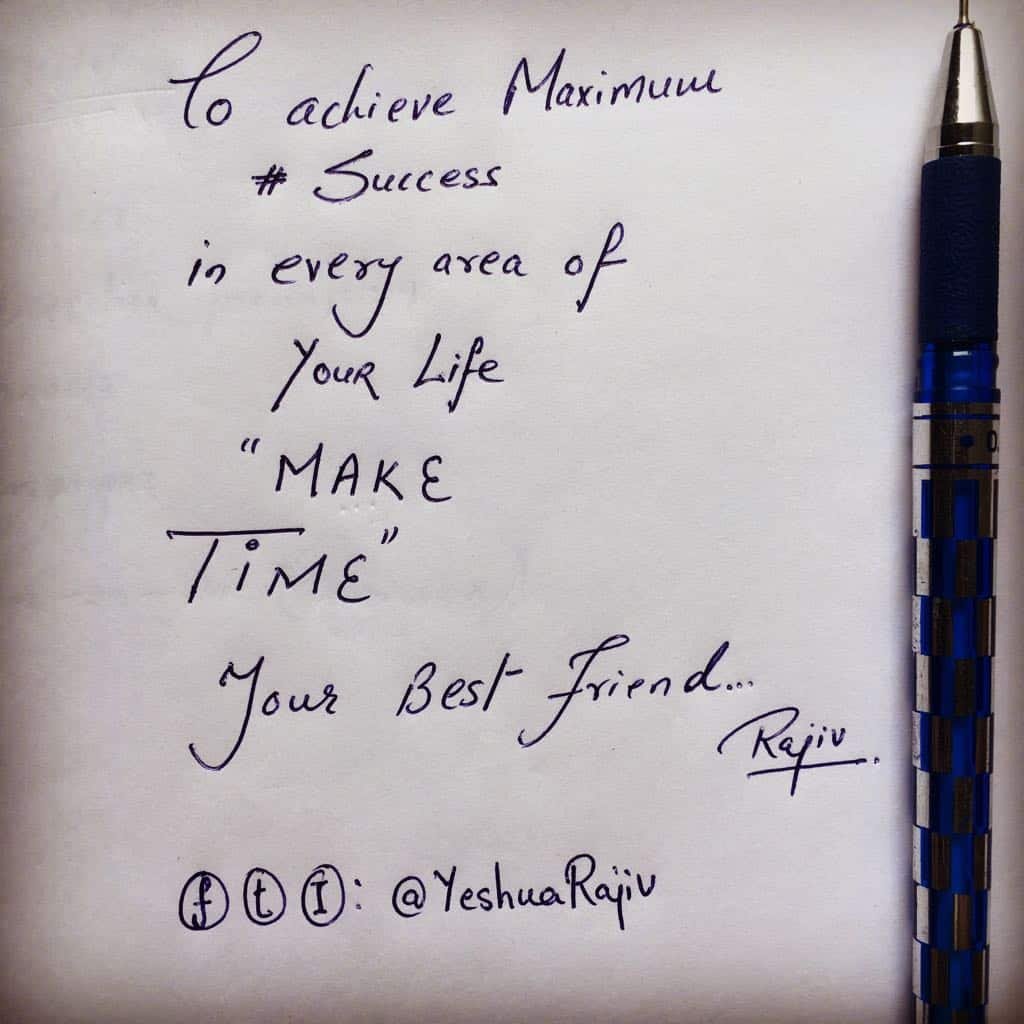 To achieve Maximum
# Success
in every area of
Your Life
"MAKE
TiME"
Your Best Friend...
Rajiv.
f t I : @YeshuaRajiv
0.